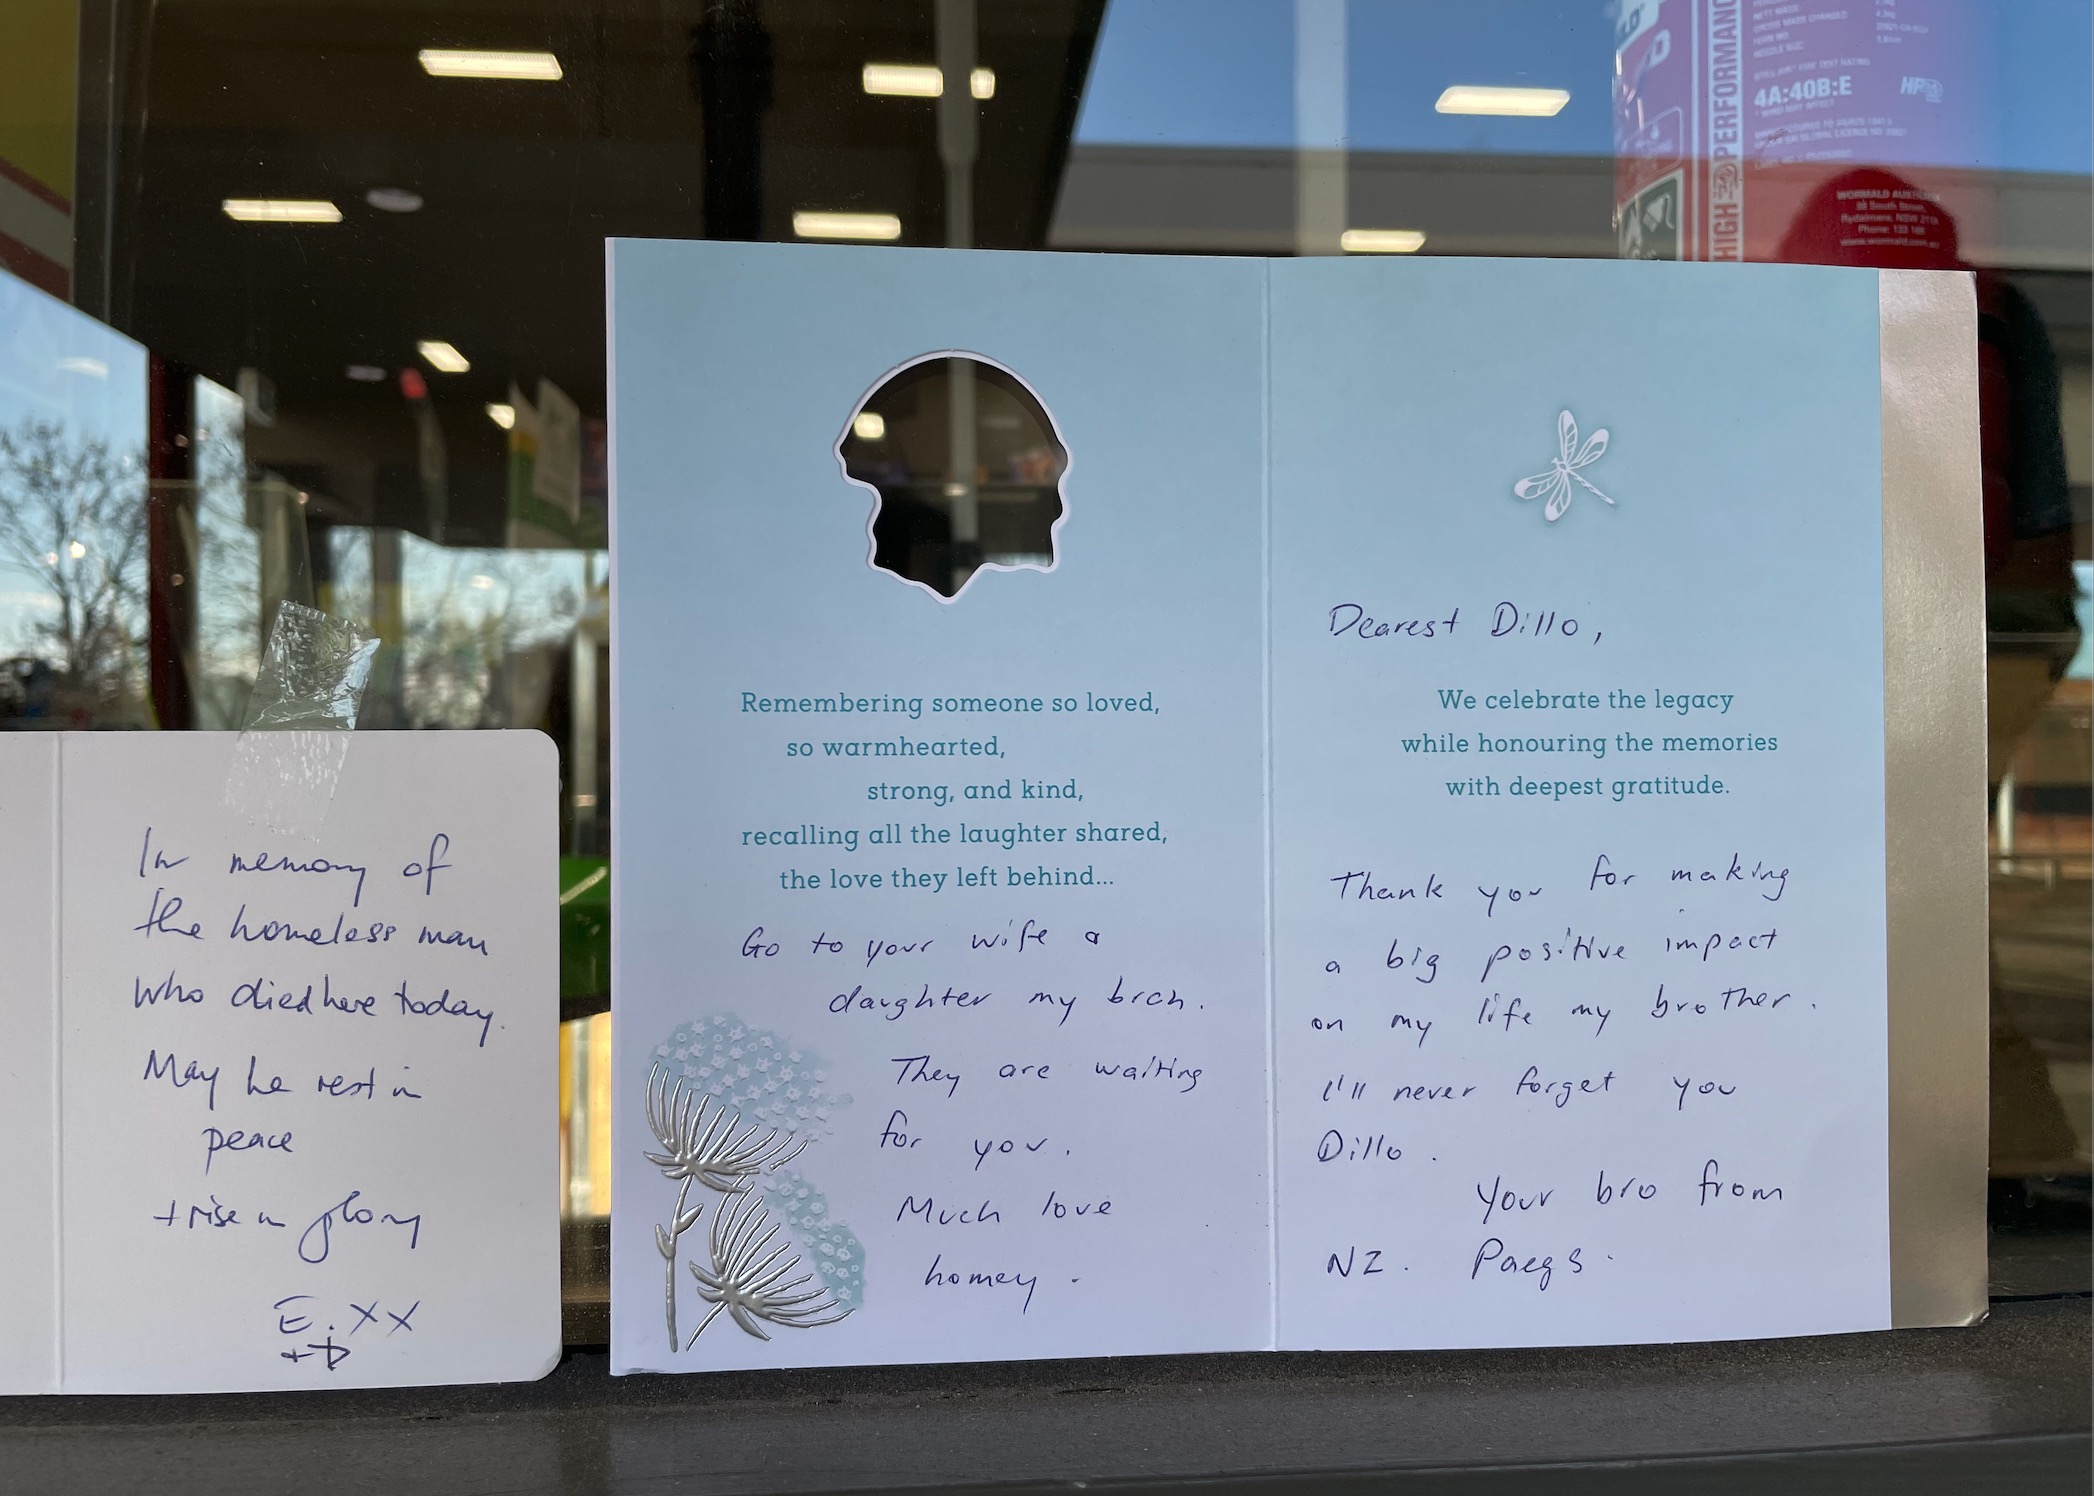 In memory of
the homeless man
who died here today.
May he rest in
peace
+ rise in glory
E. XX
Remembering someone so loved,
so warmhearted,
strong, and kind,
recalling all the laughter shared,
the love they left behind...
Go to your wife &
daughter my brah.
They are waiting
for you.
Much love
homey.
Dearest Dillo,
We celebrate the legacy
while honouring the memories
with deepest gratitude.
Thank you for making
a big positive impact
on my life my brother.
I'll never forget you
Dillo.
Your bro from
NZ. Paegs.
HIGH PERFORMANC
4A:40B:E
WORMALD AUSTRALIA
Rydalmere, NSW 2116
Phone: 133 166